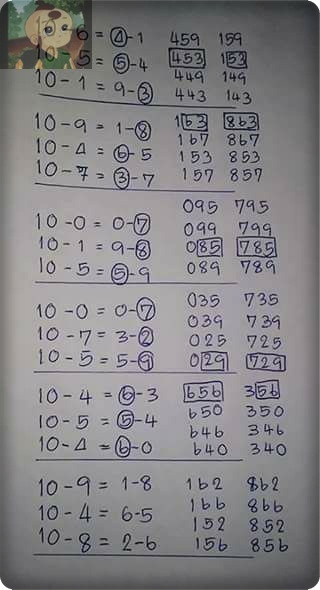 6 = 4-1 459 159
5 = 5-4 453 153
10-1 = 9-3 449 149
443 143
10-9 = 1-8 163 863
10-4 = 6-5 167 867
10-7 = 3-7 153 853
157 857
095 795
10-0 = 0-7 099 799
10-1 = 9-8 085 785
10-5 = 5-9 089 789
035 735
10-0 = 0-7 039 739
10-7 = 3-2 025 725
10-5 = 5-9 029 729
10-4 = 6-3 656 356
10-5 = 5-4 650 350
10-4 = 6-0 646 346
640 340
10-9 = 1-8 162 862
10-4 = 6-5 166 866
10-8 = 2-6 152 852
156 856